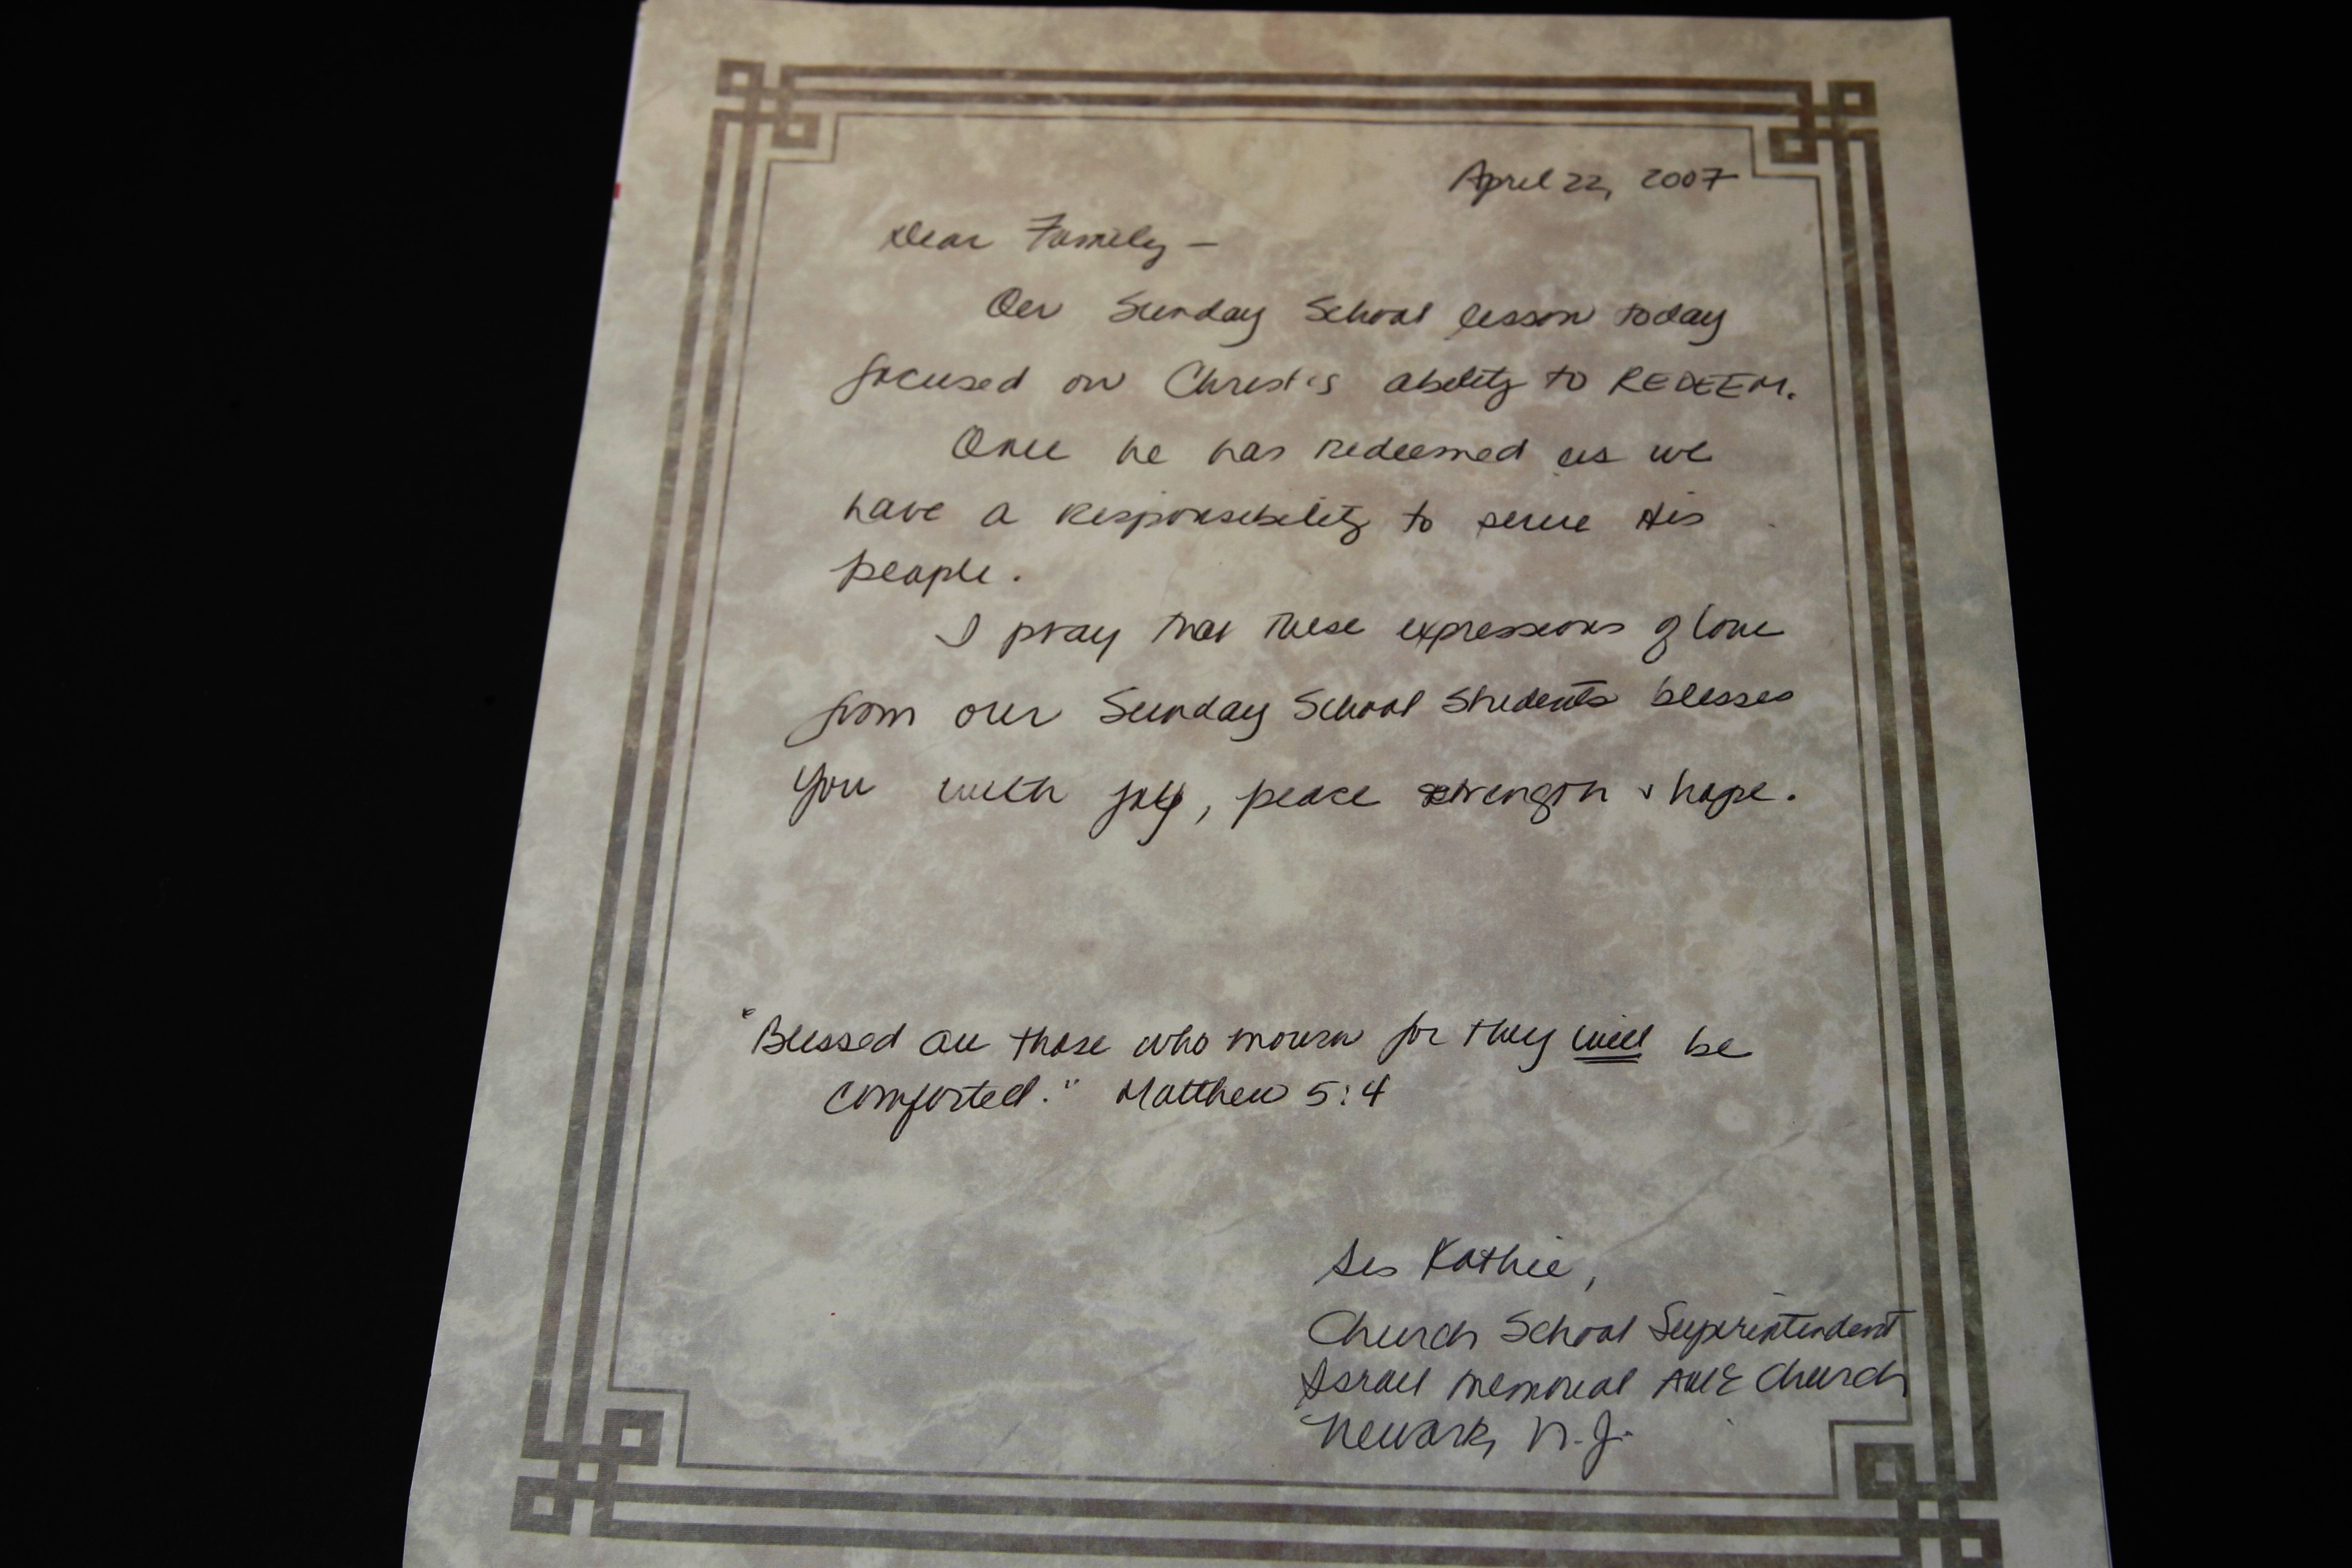 April 22, 2007
Dear Family —
Our Sunday School lesson today
focused on Christ's ability to REDEEM.
Once he has redeemed us we
have a responsibility to serve His
people.
I pray that these expressions of love
from our Sunday School Students blesses
you with joy, peace strength & hope.
"Blessed are those who mourn for they will be
comforted." Matthew 5:4
Sis Kathie,
Church School Superintendent
Israel Memorial AME Church
Newark, N.J.